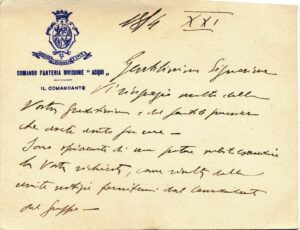 15/4 XXI
COMANDO FANTERIA DIVISIONE "ACQUI"
IL COMANDANTE
Gentilissima Signorina
Vi ringrazio molto della
Vostra e del pensiero
che avete avuto per me —
Sono di non potere subito esaudire
la Vostra richiesta, come delle
unite notizie fornitemi dal Comandante
del gruppo —